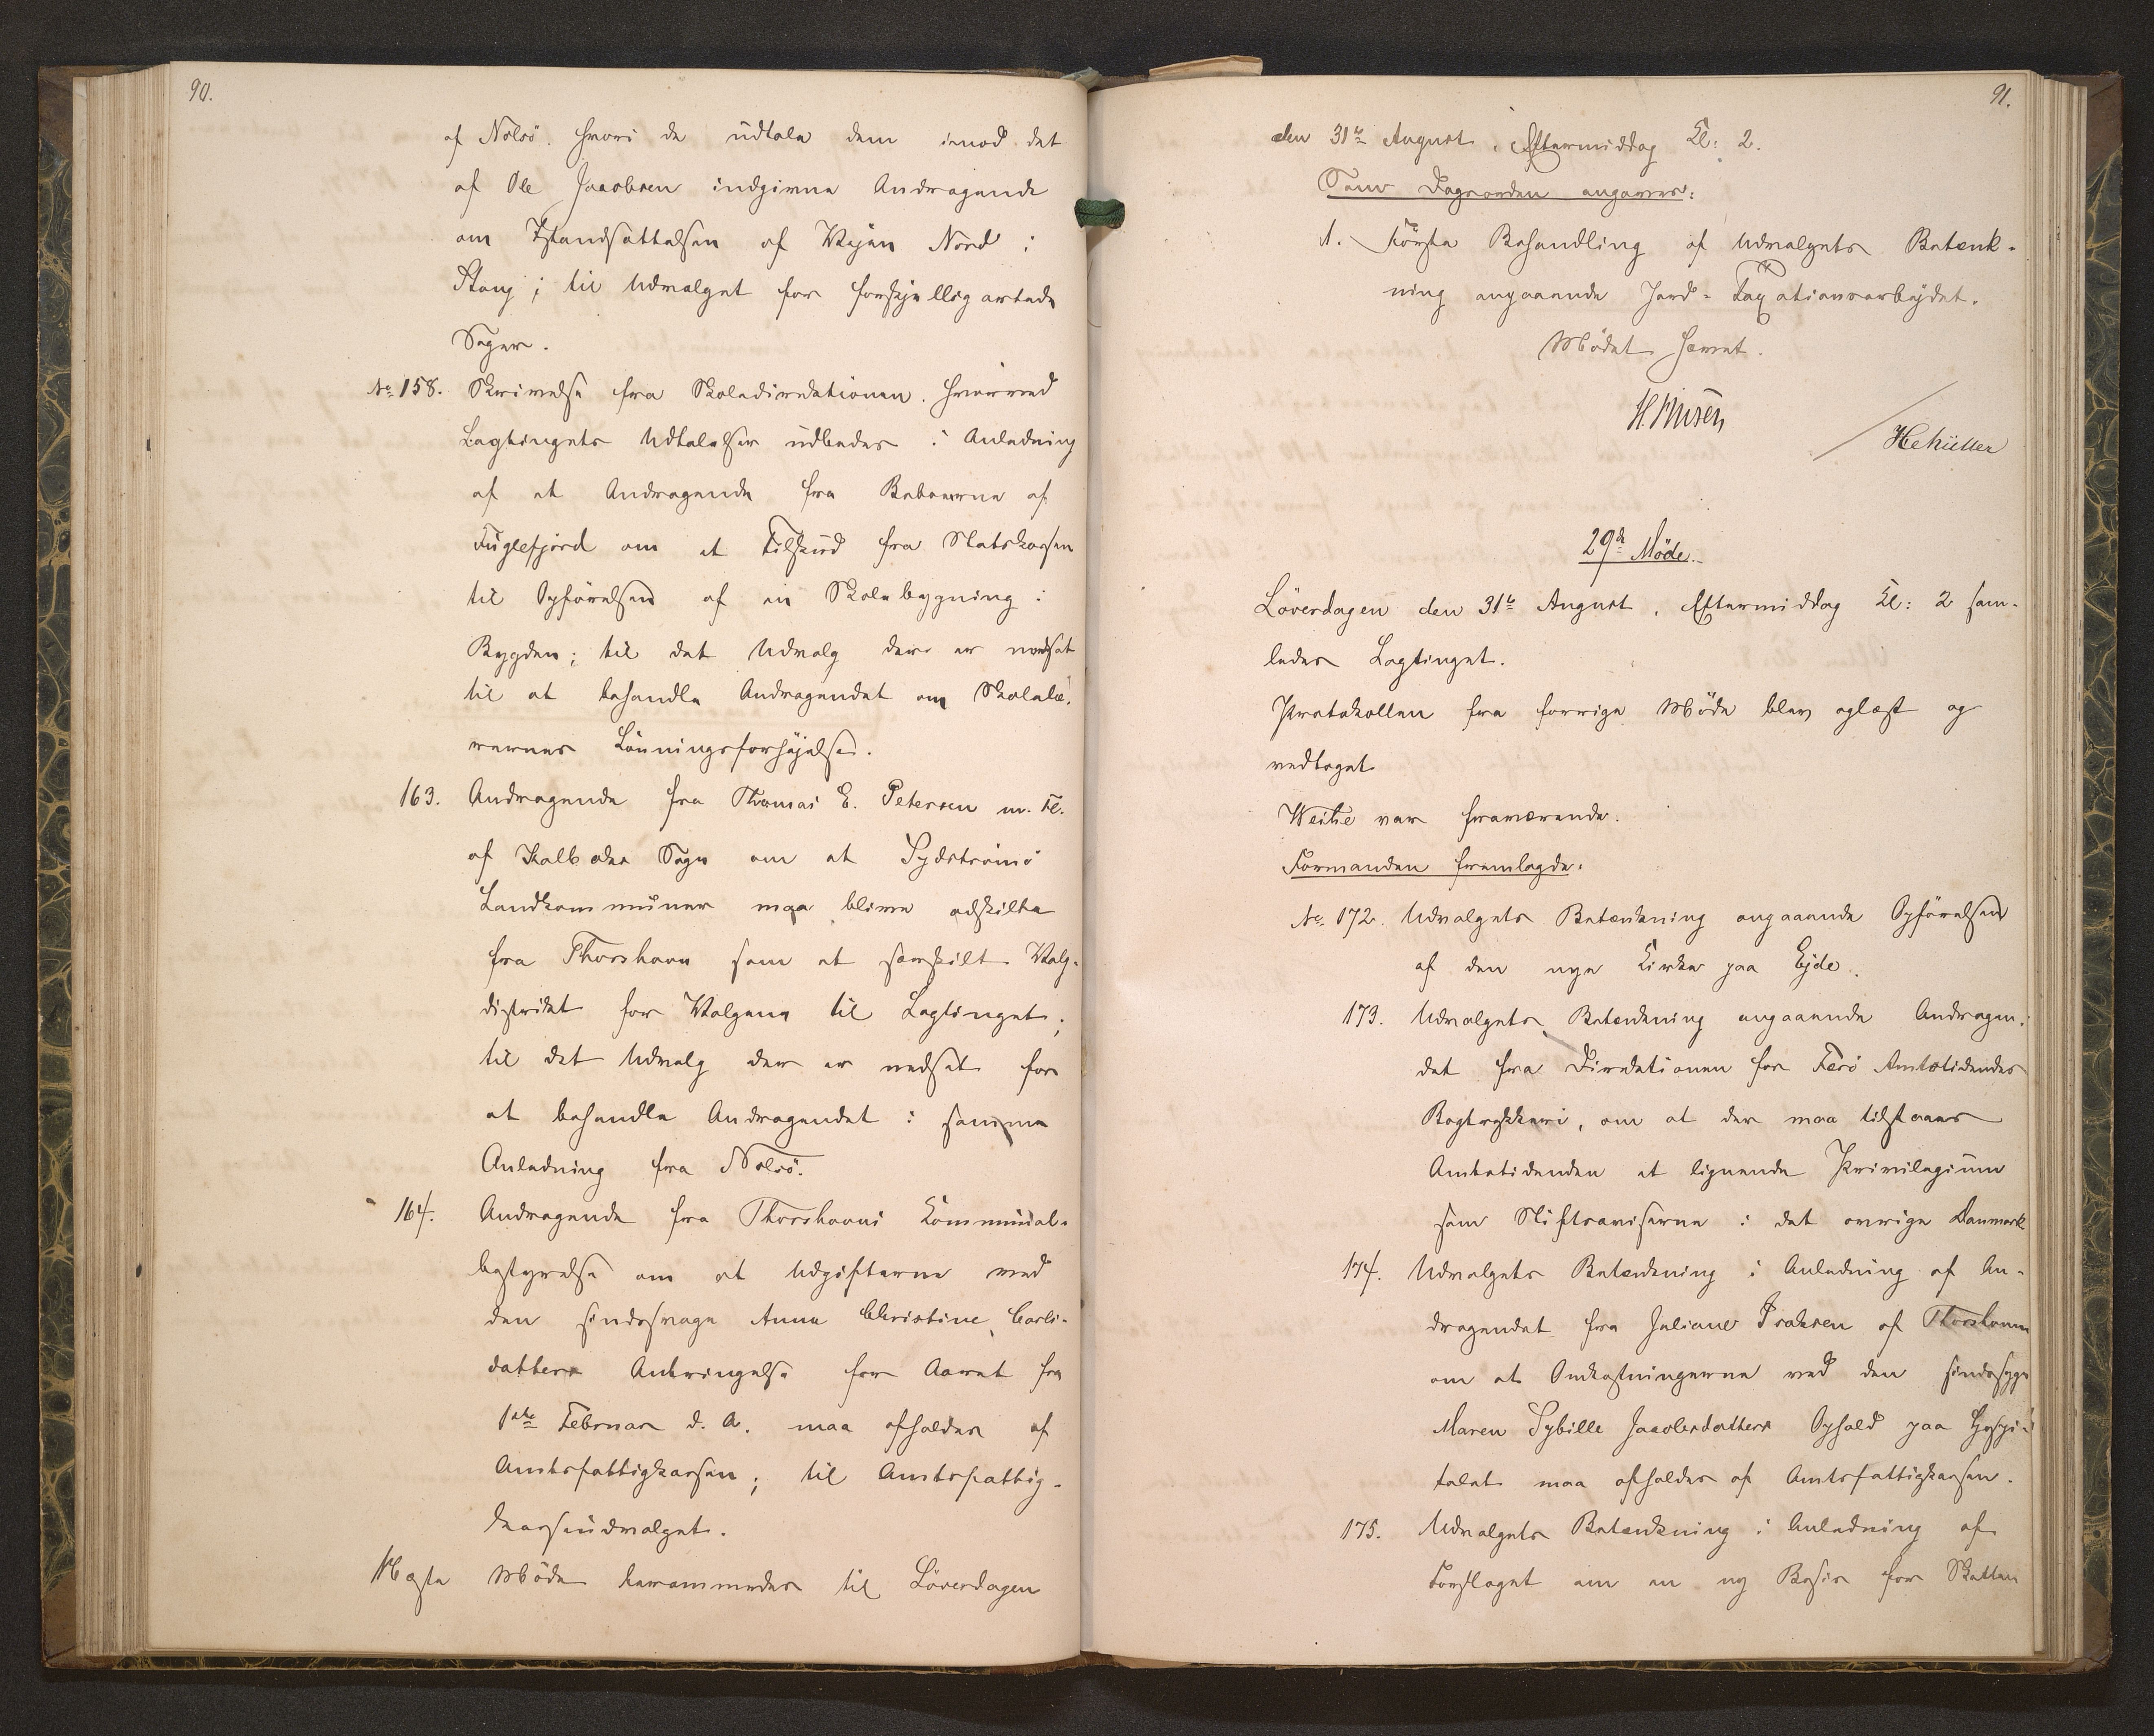 90.
af Nolsö. hvori de udtale dem imod det
af Ole Jacobsen indgivne Andragende
om Istandsættelsen af Vejen Nord i
Stang; til Udvalget for forskjelligartede
Sager.
No 158. Skrivelse fra Skoledirektionen. hvorved
Lagtingets Udtalelser udbedes i Anledning
af et Andragende fra Beboerne af
Fuglefjord om et Tilskud fra Statskassen
til Opförelsen af en Skolebygning i
Bygden; til det Udvalg der er nedsat
til at behandle Andragendet om Skolelæ-
rernes Lönningsforhöjelse.
163. Andragende fra Thomas E. Petersen m. Fl.
af Kalbaks Sogn om at Sydströmö
Landkommuner maa blive adskilte
fra Thorshavn som et særskilt Valg-
distrikt for Valgene til Lagtinget;
til det Udvalg der er nedsat for
at behandle Andragendet i samme
Anledning fra Nolsö.
164. Andragende fra Thorshavns Kommunal-
bestyrelse om at Udgifterne ved
den sindssvage Anna Christine Carls-
datters Anbringelse for Aaret fra
1ste Februar d. A. maa afholdes af
Amtsfattigkassen; til Amtsfattig-
kasseudvalget.
Næste Möde berammedes til Löverdagen
91.
den 31te August. Eftermiddag Kl: 2.
Som Dagsorden angaves:
1. Förste Behandling af Udvalgets Betænk-
ning angaaende Jord-Taxationsarbejdet.
Mödet hævet.
H. Finsen
HCMüller
29de Möde.
Löverdagen den 31te August. Eftermiddag Kl: 2 sam-
ledes Lagtinget.
Protokollen fra forrige Möde blev oplæst og
vedtaget
Weihe var fraværende.
Formanden fremlagde:
No. 172. Udvalgets Betænkning angaaende Opförelsen
af den nye Kirke paa Ejde.
173. Udvalgets Betænkning angaaende Andragen-
det fra Direktionen for Færö Amtstidendes
Bogtrykkeri, om at der maa tilstaaes
Amtstidenden et lignende Privilegium
som Stiftsaviserne i det övrige Danmark
174. Udvalgets Betænkning i Anledning af An-
dragendet fra Juliane Isaksen af Thorshavn
om at Omkostningerne ved den sindssyge
Maren Sybille Jacobsdatters Ophold paa Hospi-
talet maa afholdes af Amtsfattigkassen.
175. Udvalgets Betænkning i Anledning af
Forslaget om en ny Basis for Skatten